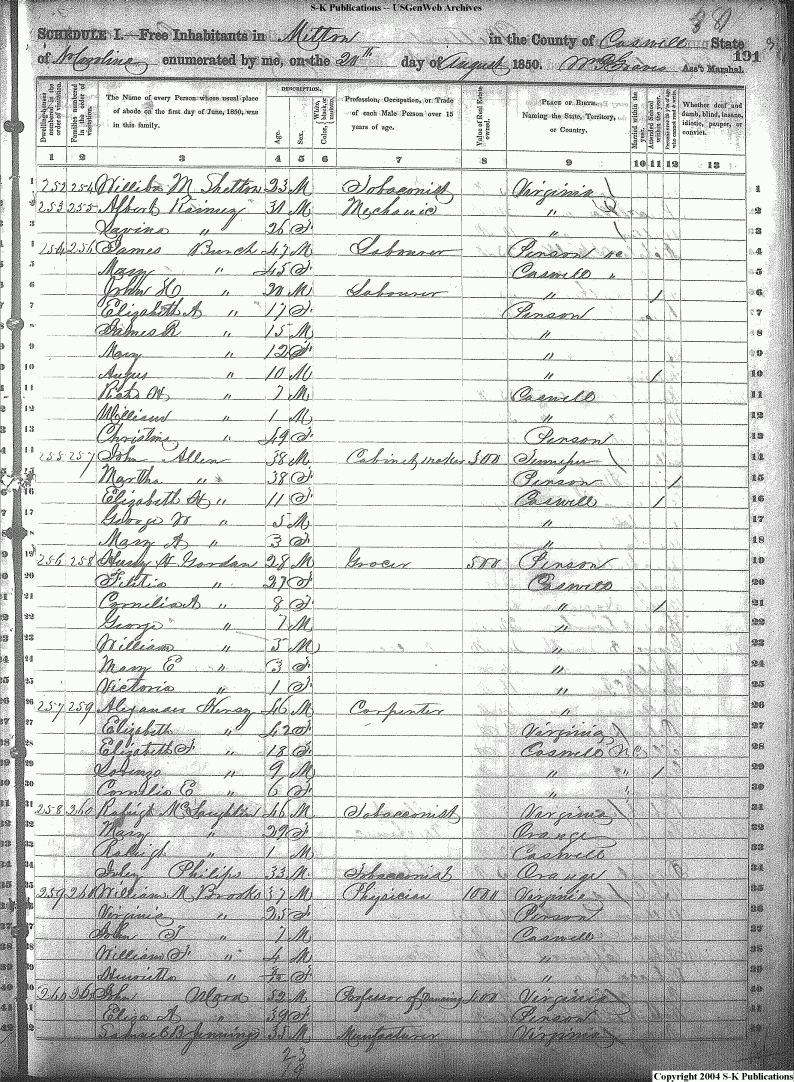 S-K Publications -- USGenWeb Archives
SCHEDULE I.—Free Inhabitants in Milton in the County of Caswell State
of No Carolina enumerated by me, on the 20th day of August 1850. Ass't Marshal.
191
DESCRIPTION.
Dwelling-houses numbered in the order of visitation.
Families numbered in the order of visitation.
The Name of every Person whose usual place of abode on the first day of June, 1850, was in this family.
Age.
Sex.
White, Color, black, or mulatto.
Profession, Occupation, or Trade of each Male Person over 15 years of age.
Value of Real Estate owned.
PLACE OF BIRTH. Naming the State, Territory, or Country.
Married within the year.
Attended School within the year.
Persons over 20 y'rs of age who cannot read & write.
Whether deaf and dumb, blind, insane, idiotic, pauper, or convict.
1 2 3 4 5 6 7 8 9 10 11 12 13
1 252 254 M Shelton 23 M Tobaconist Virginia 1
2 253 255 Albert Rainey 31 M Mechanic " 2
3 Lavina " 26 F " 3
4 256 James Burch 47 M Labourer Person nc 4
5 Mary " 45 F Caswell " 5
6 John " 20 M Labourer " 1 6
7 Elizabeth A " 17 F Person 7
8 James R " 15 M " 8
9 Mary " 12 F " 9
10 " 10 M " 1 10
11 " 7 M Caswell 11
12 William " 1 M " 12
13 Christina " 49 F Person 13
14 257 John Allen 38 M Cabinet maker 300 14
15 Martha " 38 F Person 1 15
16 Elizabeth " 11 F Caswell 1 16
17 George W " 5 M " 17
18 Mary A " 3 F " 18
19 256 258 Gordan 28 M Grocer 500 Person 19
20 " 27 F Caswell 20
21 Cornelia A " 8 F " 1 21
22 George " 7 M " 22
23 William " 5 M " 23
24 Mary E " 3 F " 24
25 Victoria " 1 F " 25
26 257 259 Alexander Henry 46 M Carpenter " 26
27 Elizabeth " 42 F Virginia 27
28 Elizabeth F " 13 F Caswell NC 28
29 Lorenzo " 9 M " " 1 29
30 Cornelia E " 6 F " " 30
31 258 260 Raleigh McLaughlin 46 M Tobacconist Virginia 31
32 Mary " 29 F Orange 32
33 Raleigh " 1 M Caswell 33
34 Philips 33 M Tobacconist Orange 34
35 259 261 William M Brooks 37 M Physician 1000 Virginia 35
36 Virginia " 25 F Person 36
37 John T " 7 M Caswell 37
38 William F " 4 M " 38
39 Henrietta " F " 39
40 260 John Ward 52 M Professor of Dancing 400 Virginia 40
41 Eliza A " 39 F Person 41
42 Samuel B Jennings 35 M Virginia 42
23
19
Copyright 2004 S-K Publications